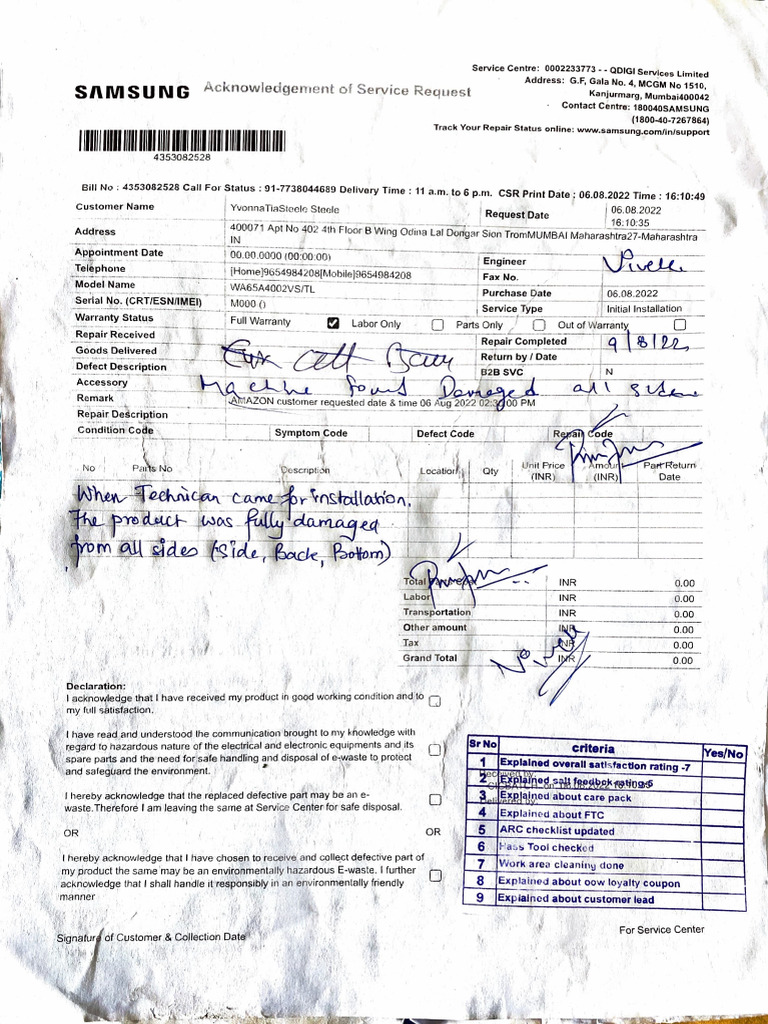 Service Centre: 0002233773 - - QDIGI Services Limited
SAMSUNG Acknowledgement of Service Request
Address: G.F, Gala No. 4, MCGM No 1510,
Kanjurmarg, Mumbai400042
Contact Centre: 180040SAMSUNG
(1800-40-7267864)
Track Your Repair Status online: www.samsung.com/in/support
4353082528
Bill No : 4353082528 Call For Status : 91-7738044689 Delivery Time : 11 a.m. to 6 p.m. CSR Print Date : 06.08.2022 Time : 16:10:49
Customer Name YvonnaTiaSteele Steele Request Date 06.08.2022 16:10:35
Address 400071 Apt No 402 4th Floor B Wing Odina Lal Dongar Sion TromMUMBAI Maharashtra27-Maharashtra
IN
Appointment Date 00.00.0000 (00:00:00) Engineer
Telephone [Home]9654984208[Mobile]9654984208 Fax No.
Model Name WA65A4002VS/TL Purchase Date 06.08.2022
Serial No. (CRT/ESN/IMEI) M000 () Service Type Initial Installation
Warranty Status Full Warranty Labor Only Parts Only Out of Warranty
Repair Received Repair Completed 9/8/22
Goods Delivered Return by / Date
Defect Description B2B SVC N
Accessory Machine found Damaged all
Remark AMAZON customer requested date & time 06 Aug 2022 02:30:00 PM
Repair Description
Condition Code Symptom Code Defect Code Repair Code
No Parts No Description Location Qty Unit Price (INR) Amount (INR) Part Return Date
When Technican came for installation.
The product was fully damaged
from all sides (Side, Back, Bottom)
Total INR 0.00
Labor INR 0.00
Transportation INR 0.00
Other amount INR 0.00
Tax INR 0.00
Grand Total INR 0.00
Declaration:
I acknowledge that I have received my product in good working condition and to
my full satisfaction.
I have read and understood the communication brought to my knowledge with
regard to hazardous nature of the electrical and electronic equipments and its
spare parts and the need for safe handling and disposal of e-waste to protect
and safeguard the environment.
I hereby acknowledge that the replaced defective part may be an e-
waste.Therefore I am leaving the same at Service Center for safe disposal.
OR OR
I hereby acknowledge that I have chosen to receive and collect defective part of
my product the same may be an environmentally hazardous E-waste. I further
acknowledge that I shall handle it responsibly in an environmentally friendly
manner
Sr No criteria Yes/No
1 Explained overall satisfaction rating -7
2 Explained salt feedbck rating-5
3 Explained about care pack
4 Explained about FTC
5 ARC checklist updated
6 Hass Tool checked
7 Work area cleaning done
8 Explained about oow loyalty coupon
9 Explained about customer lead
Signature of Customer & Collection Date
For Service Center